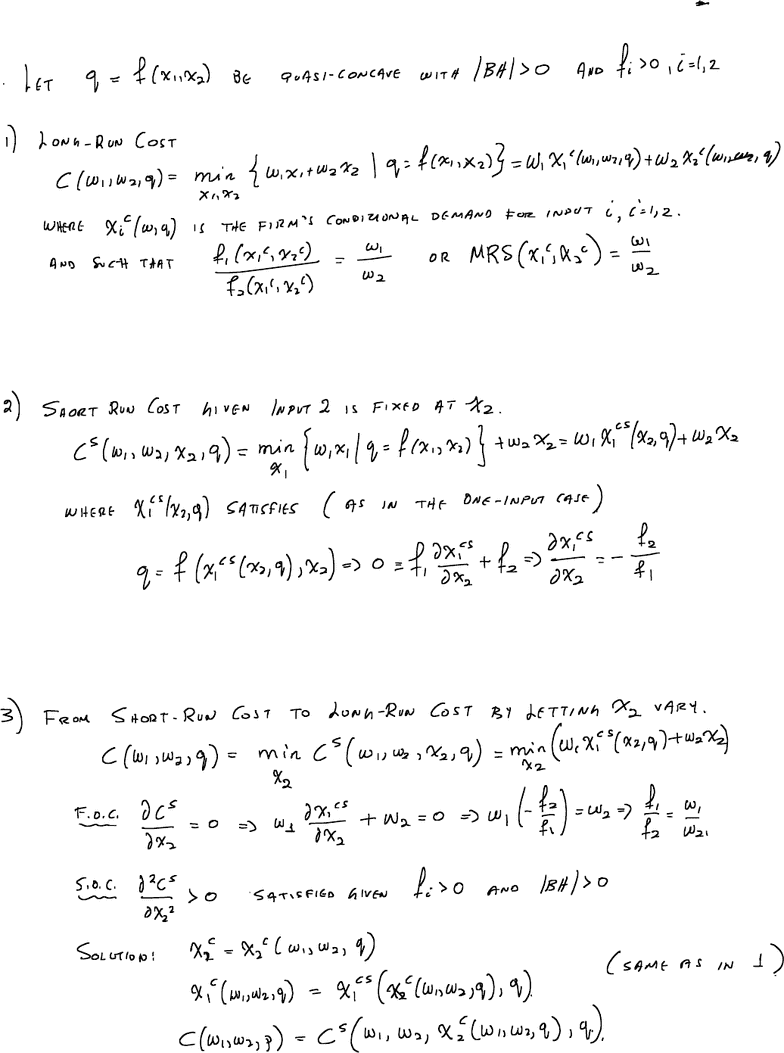 . LET q = f(x₁,x₂) BE QUASI-CONCAVE WITH |BH|>0 AND fᵢ>0, i=1,2
1) LONG-RUN COST
C(w₁,w₂,q) = min {w₁x₁+w₂x₂ | q=f(x₁,x₂)} = w₁x₁ᶜ(w₁,w₂,q)+w₂x₂ᶜ(w₁,w₂,q)
x₁,x₂
WHERE xᵢᶜ(w,q) IS THE FIRM'S CONDITIONAL DEMAND FOR INPUT i, i=1,2.
AND SUCH THAT f₁(x₁ᶜ,x₂ᶜ)/f₂(x₁ᶜ,x₂ᶜ) = w₁/w₂ OR MRS(x₁ᶜ,x₂ᶜ) = w₁/w₂
2) SHORT RUN COST GIVEN INPUT 2 IS FIXED AT x₂.
Cˢ(w₁,w₂,x₂,q) = min {w₁x₁ | q=f(x₁,x₂)} + w₂x₂ = w₁x₁ᶜˢ(x₂,q)+w₂x₂
x₁
WHERE x₁ᶜˢ(x₂,q) SATISFIES (AS IN THE ONE-INPUT CASE)
q = f(x₁ᶜˢ(x₂,q),x₂) => 0 = f₁ ∂x₁ᶜˢ/∂x₂ + f₂ => ∂x₁ᶜˢ/∂x₂ = - f₂/f₁
3) FROM SHORT-RUN COST TO LONG-RUN COST BY LETTING x₂ VARY.
C(w₁,w₂,q) = min Cˢ(w₁,w₂,x₂,q) = min (w₁x₁ᶜˢ(x₂,q)+w₂x₂)
x₂ x₂
F.O.C. ∂Cˢ/∂x₂ = 0 => w₁ ∂x₁ᶜˢ/∂x₂ + w₂ = 0 => w₁(-f₂/f₁) = w₂ => f₁/f₂ = w₁/w₂,
S.O.C. ∂²Cˢ/∂x₂² > 0 SATISFIED GIVEN fᵢ>0 AND |BH|>0
SOLUTION: x₂ᶜ = x₂ᶜ(w₁,w₂,q)
x₁ᶜ(w₁,w₂,q) = x₁ᶜˢ(x₂ᶜ(w₁,w₂,q),q). (SAME AS IN 1)
C(w₁,w₂,q) = Cˢ(w₁,w₂,x₂ᶜ(w₁,w₂,q),q).